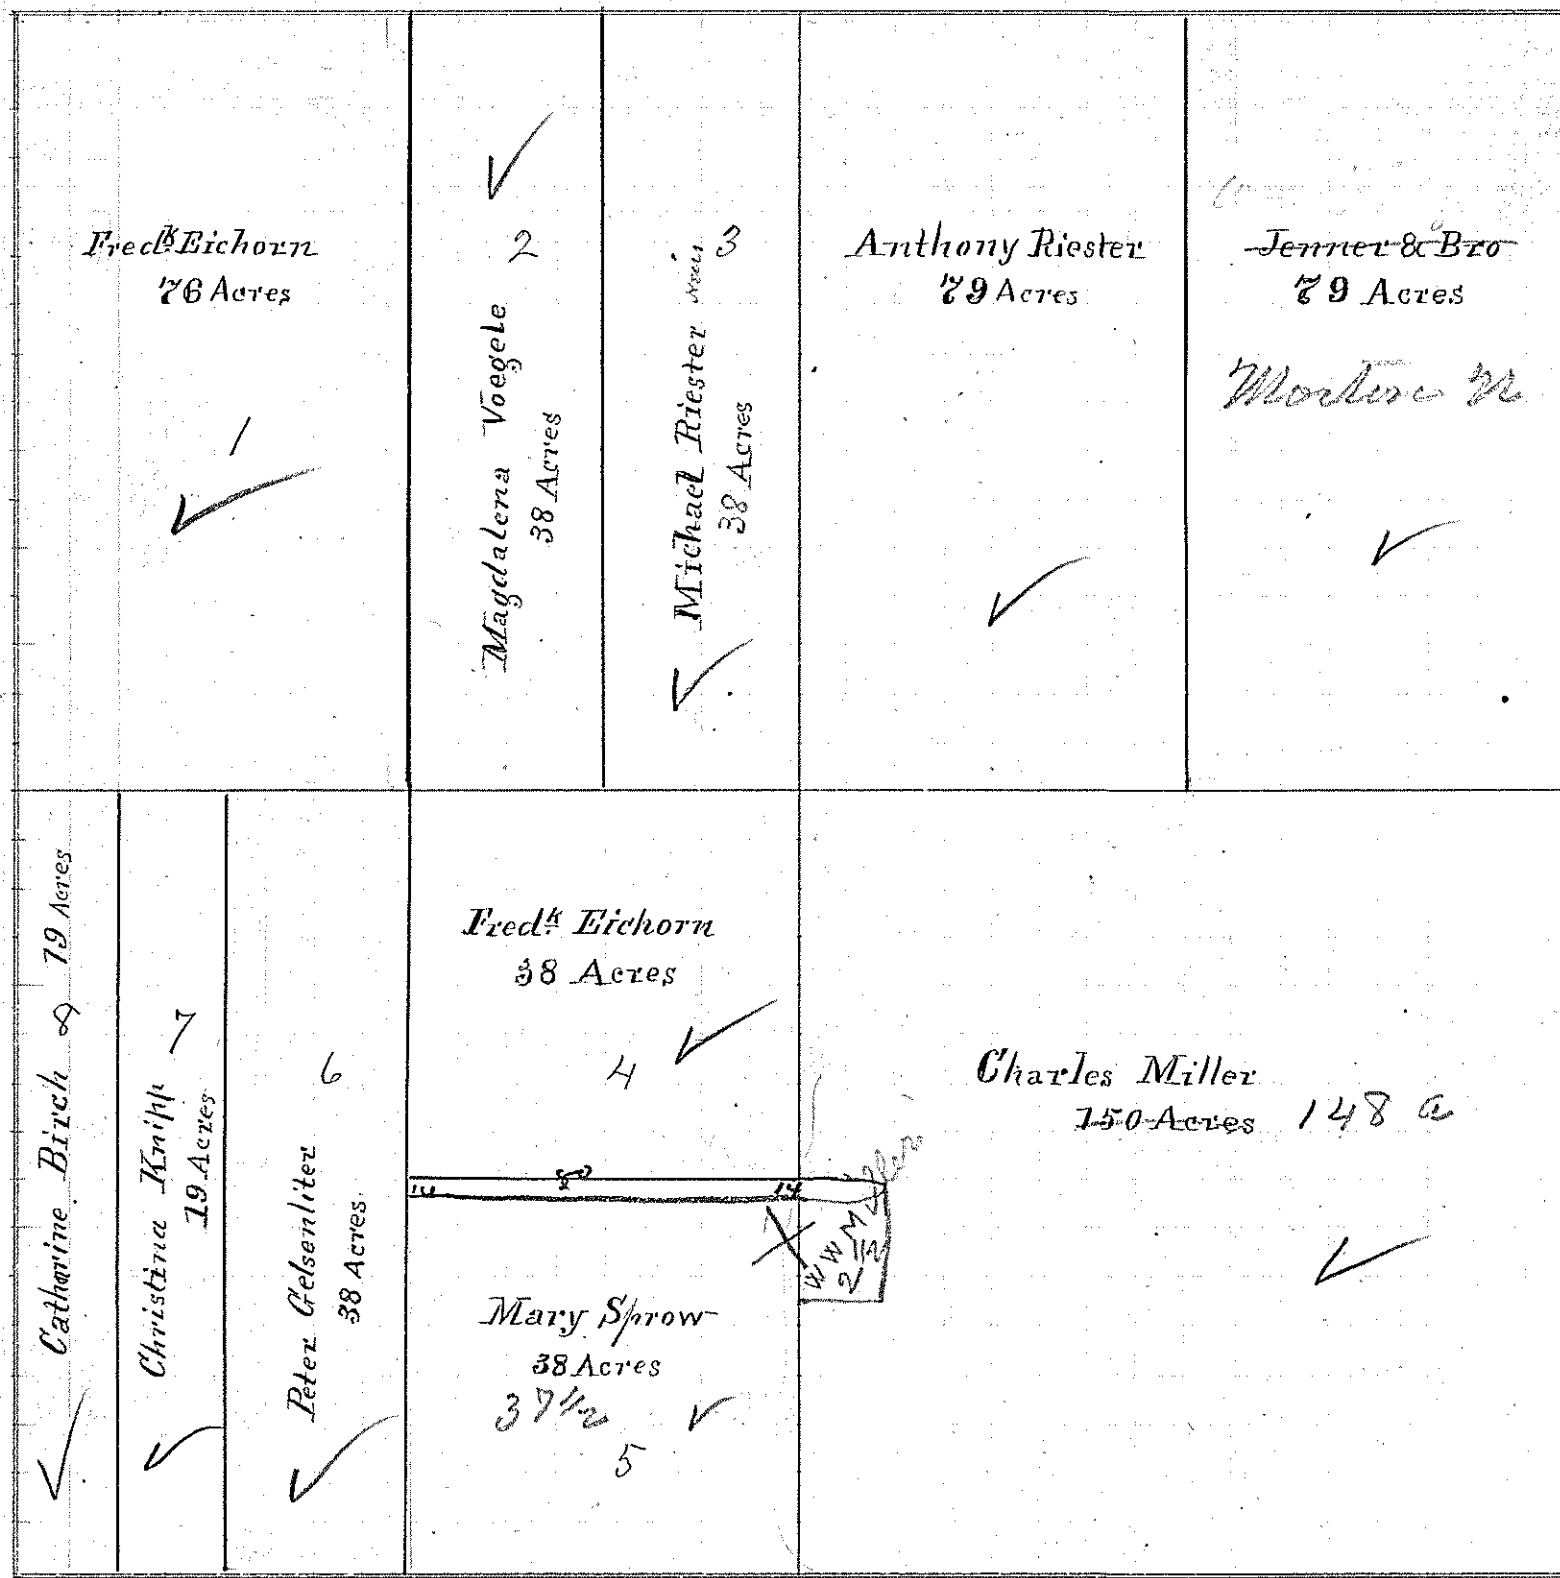 Fred.k Eichorn
76 Acres
1
2
Magdalena Voegele
38 Acres
3
Michael Riester
38 Acres
Anthony Riester
79 Acres
Jenner & Bro
79 Acres
Catharine Birch 8 19 Acres
Christina Knipp 7
19 Acres
6
Peter Gelsenliter
38 Acres
Fred.k Eichorn
38 Acres
4
14
14
W W Miller
2 1/2
Mary Sprow
38 Acres
37 1/2
5
Charles Miller
150 Acres 148 a